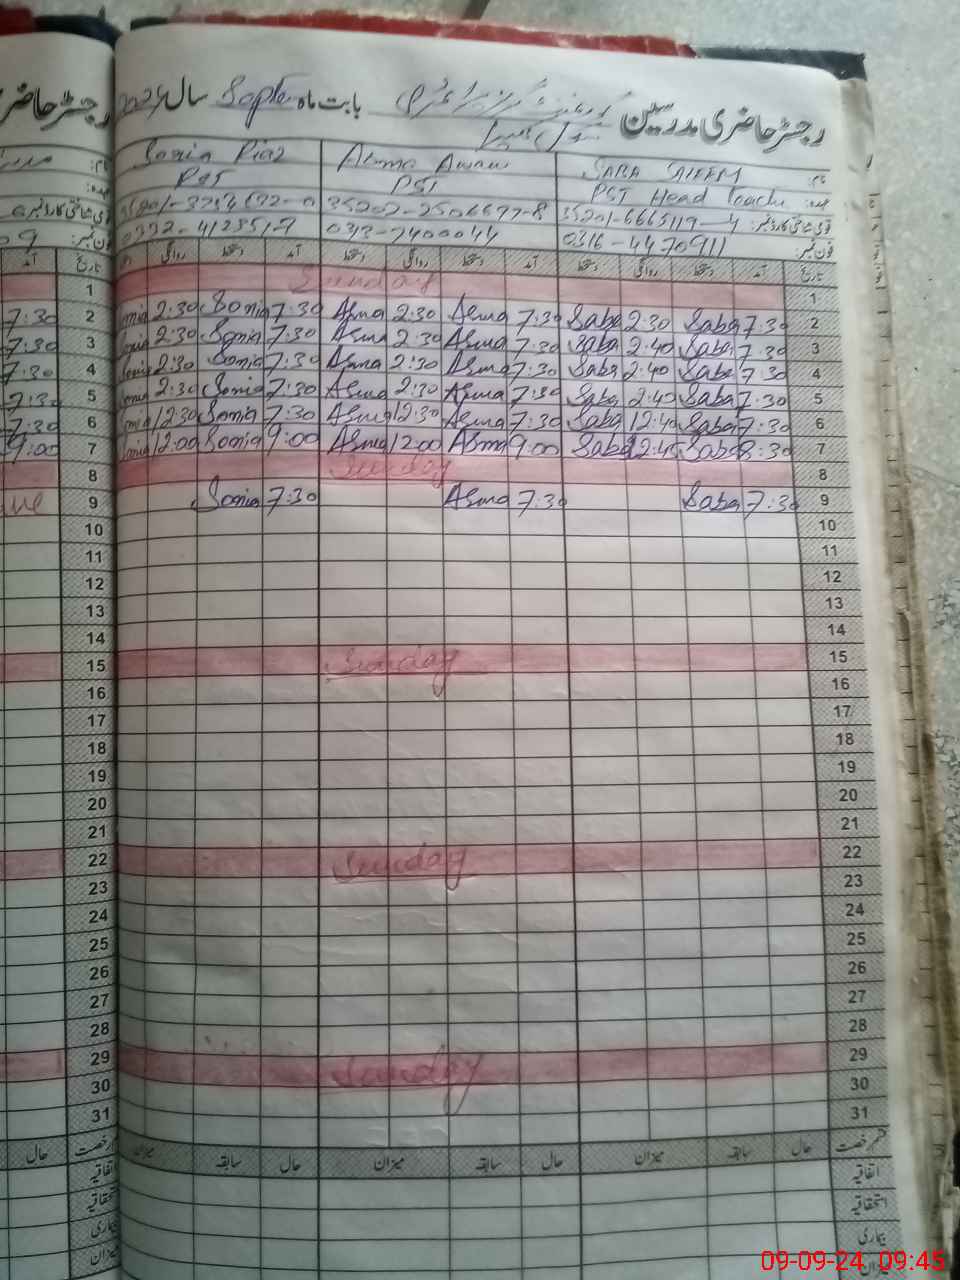 رجسٹر حاضری مدرسین بابت ماہ Septe سال 2024
نام: SABA SALEEM Asma Awan Sonia Riaz
عہدہ: PST Head Teache PST PST
قومی شناختی کارڈ نمبر: 35201-6665119-4 35202-2506677-8
فون نمبر: 0316-4470911
تاریخ آمد دستخط روانگی دستخط آمد دستخط روانگی دستخط آمد دستخط روانگی تاریخ
1 Sunday 1
2 7:30 Saba 2:30 Saba 7:30 Asma 2:30 Asma 7:30 Sonia 2:30 Sonia 2
3 7:30 Saba 2:40 Saba 7:30 Asma 2:30 Asma 7:30 Sonia 2:30 Sonia 3
4 7:30 Saba 2:40 Saba 7:30 Asma 2:30 Asma 7:30 Sonia 2:30 Sonia 4
5 7:30 Saba 2:40 Saba 7:30 Asma 2:30 Asma 7:30 Sonia 2:30 Sonia 5
6 7:30 Saba 12:40 Saba 7:30 Asma 12:30 Asma 7:30 Sonia 12:30 Sonia 6
7 8:30 Saba 12:45 Saba 9:00 Asma 12:00 Asma 9:00 Sonia 12:00 Sonia 7
8 Sunday 8
9 7:30 Saba 7:30 Asma 7:30 Sonia 9
10 10
11 11
12 12
13 13
14 14
15 Sunday 15
16 16
17 17
18 18
19 19
20 20
21 21
22 Sunday 22
23 23
24 24
25 25
26 26
27 27
28 28
29 Sunday 29
30 30
31 31
قسم رخصت حال سابقہ میزان حال سابقہ میزان حال سابقہ میزان
اتفاقیہ
استحقاقیہ
بیماری
میزان
رجسٹر حاضری
7:30
7:30
7:30
7:30
7:30
9:00
حال
09-09-24 09:45